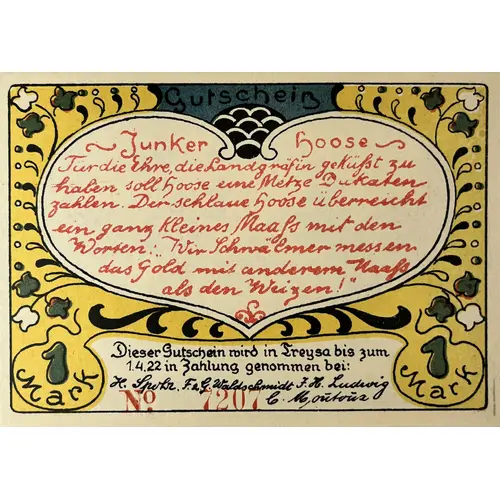 Gutschein
~ Junker Hoose ~
Für die Ehre, die Landgräfin geküßt zu
haben soll Hoose eine Metze Dukaten
zahlen. Der schlaue Hoose überreicht
ein ganz kleines Maaß mit den
Worten: "Wir Schwälmer messen
das Gold mit anderem Maaß
als den Weizen!"
Dieser Gutschein wird in Treysa bis zum
1.4.22 in Zahlung genommen bei:
H. Spohr. F. & G. Waldschmidt F. H. Ludwig
No 7207
1 Mark
1 Mark